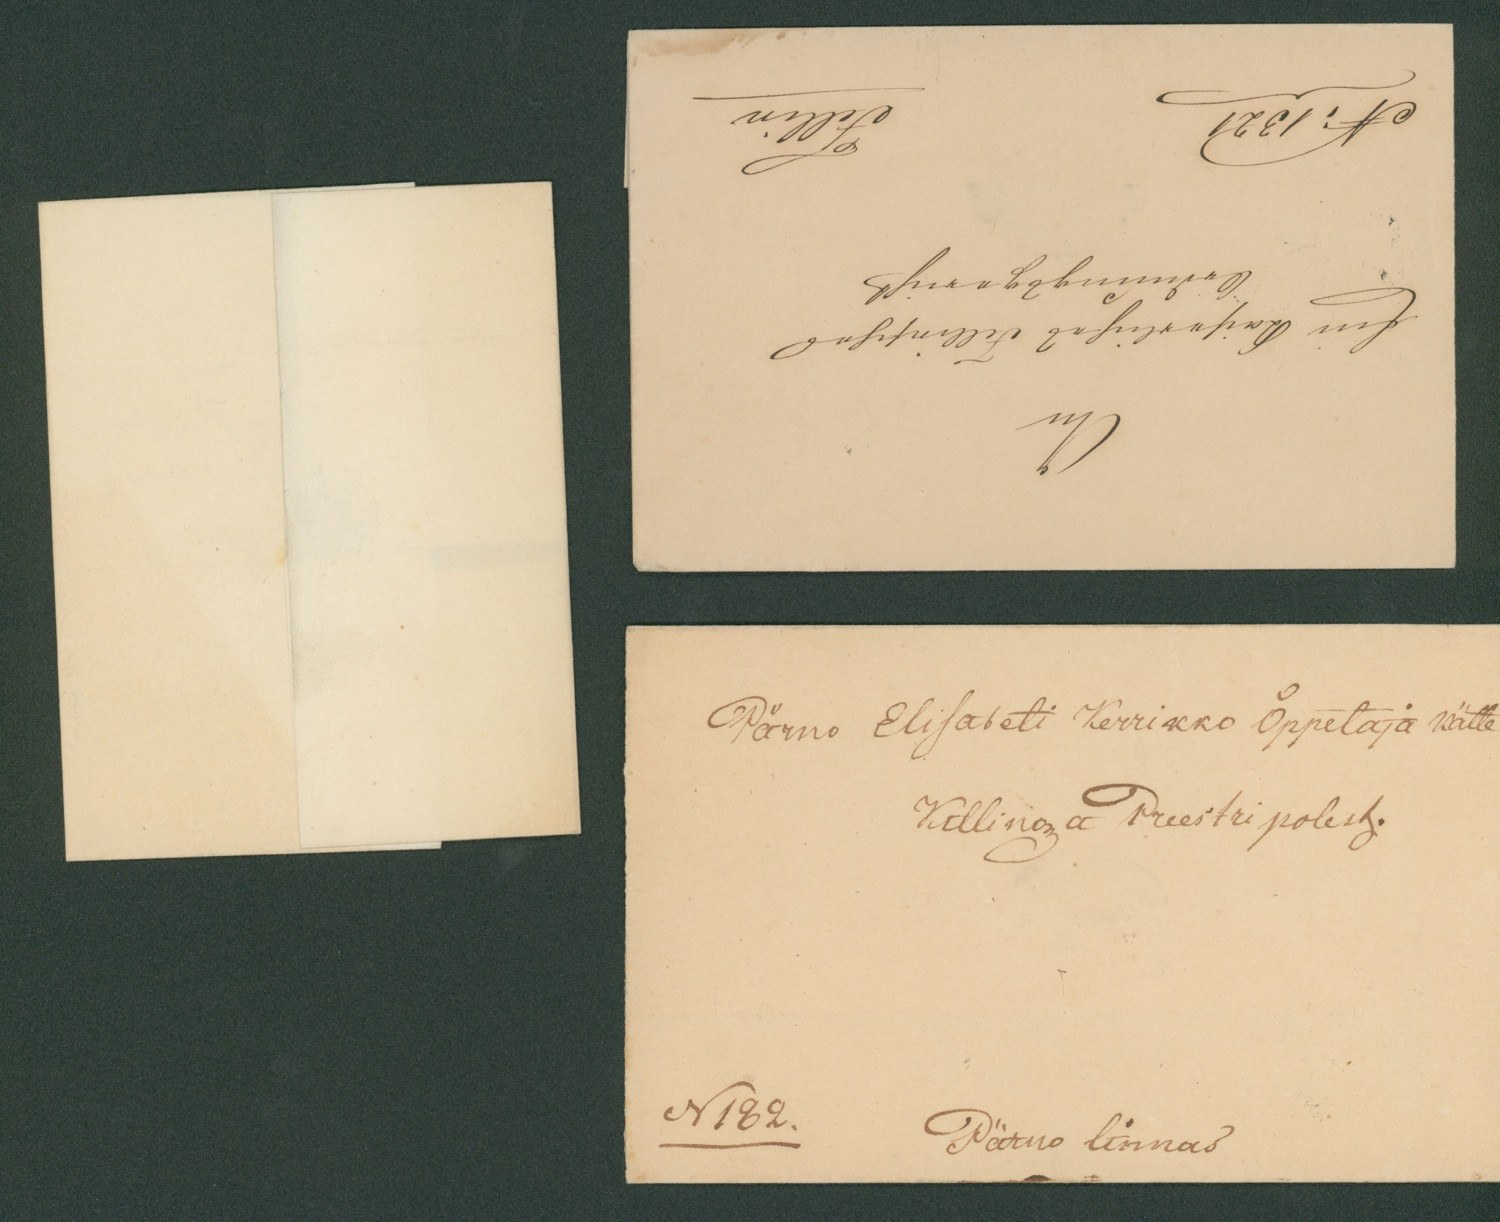 An
Ein Kaiserliches Fellinsches
Ordnungsgericht
N: 1321
Fellin
Pärno Elisabeti Kerrikko Öppetaja Kätte
Killingga Preestri polest.
N 182.
Pärno linnas